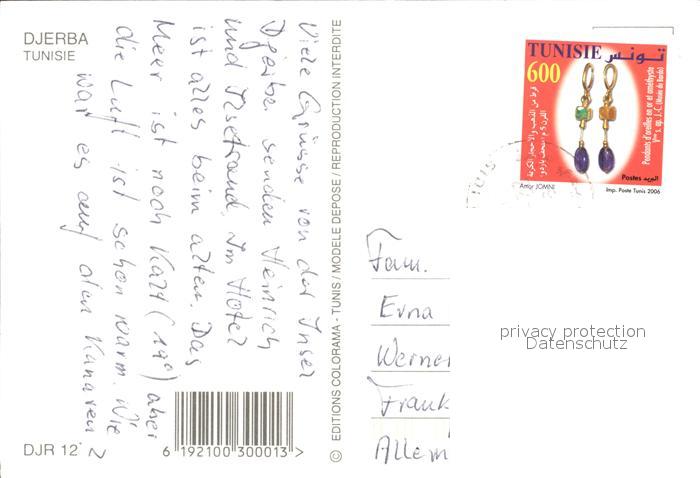 DJERBA
TUNISIE
Viele Grüsse von der Insel
Djerba senden Heinrich
und Ilsetraud. Im Hotel
ist alles beim alten. Das
Meer ist noch kalt (14°) aber
die Luft ist schon warm. Wie
war es auf den Kanaren ?
DJR 12
6 192100 300013 >
© EDITIONS COLORAMA - TUNIS / MODELE DEPOSE / REPRODUCTION INTERDITE
TUNISIE تونس
600
قرط من الذهب والأحجار الكريمة
Pendants d'oreilles en or et améthyste
Postes البريد
Amor JOMNI
Imp. Poste Tunis 2006
Fam.
Erna
Werner
Frank
Allem
privacy protection
Datenschutz